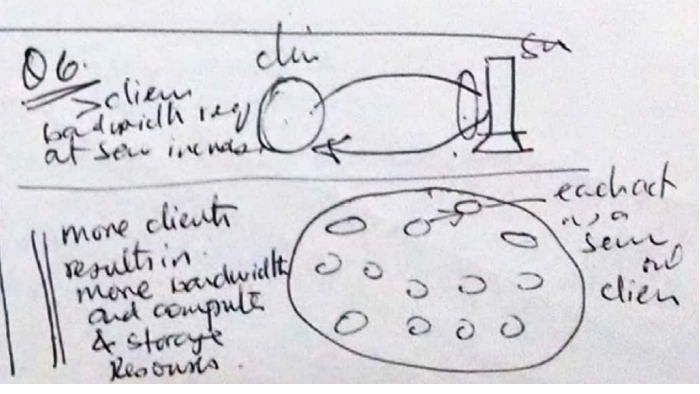 Q6.
clin
su
> clien
bandwidth req
at serv increas
more clients
results in
more bandwidth
and compute
& storage
Resourses.
each act
as a
serv
and
clien